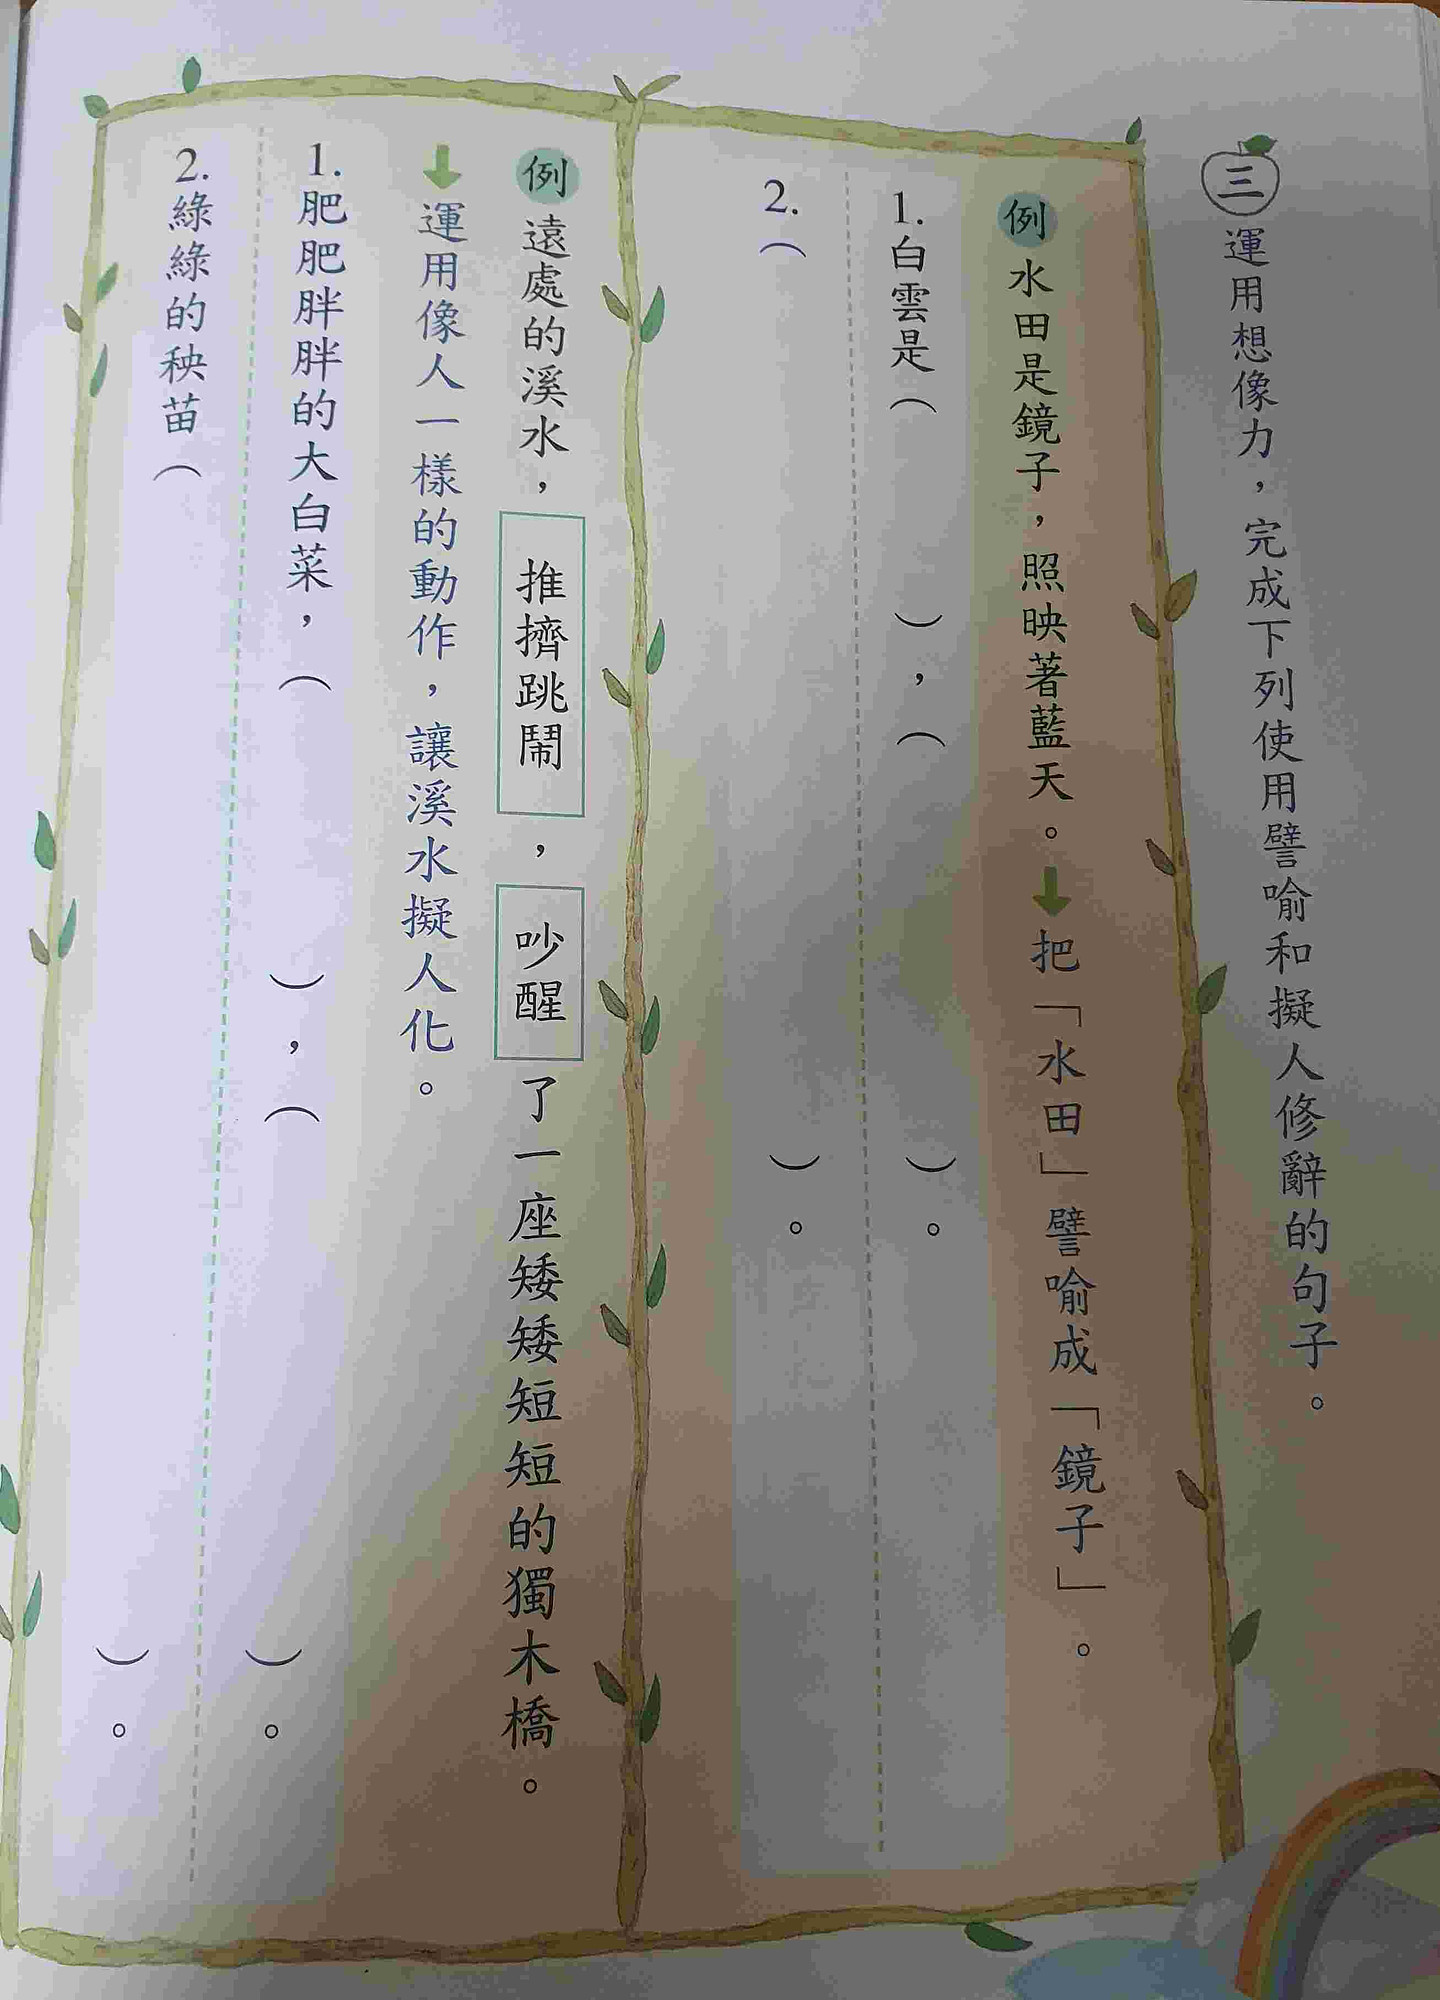 三 運用想像力，完成下列使用譬喻和擬人修辭的句子。
例 水田是鏡子，照映著藍天。 把「水田」譬喻成「鏡子」。
1. 白雲是（ ），（ ）。
2.（ ）。
例 遠處的溪水，推擠跳鬧，吵醒了一座矮矮短短的獨木橋。
運用像人一樣的動作，讓溪水擬人化。
1. 肥肥胖胖的大白菜，（ ），（ ）。
2. 綠綠的秧苗（ ）。